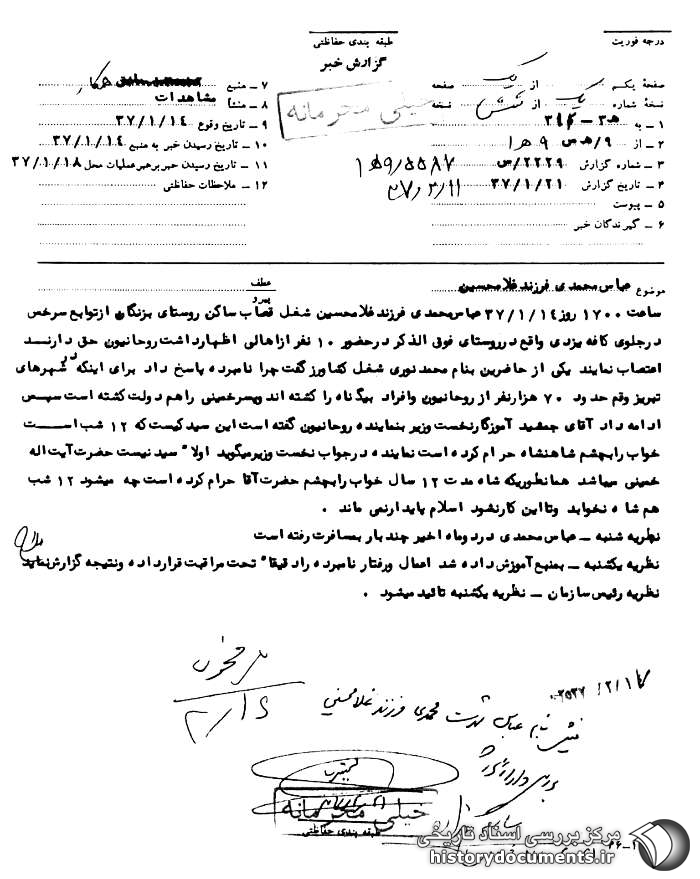 درجه فوریت
طبقه بندی حفاظتی
گزارش خبر
صفحهٔ یکم از یک صفحه
نسخهٔ شماره یک از شش نسخه
۱ ـ به ۳هـ ـ ۳۱۲
۲ ـ از ۹/هـ س ۹
۳ ـ شماره گزارش ۲۲۲۹/س
۴ ـ تاریخ گزارش ۳۷/۱/۲۱
۵ ـ پیوست
۶ ـ گیرندگان خبر
۷ ـ منبع همکار
۸ ـ منشأ مشاهدات
۹ ـ تاریخ وقوع ۳۷/۱/۱۴
۱۰ ـ تاریخ رسیدن خبر به منبع ۳۷/۱/۱۴
۱۱ ـ تاریخ رسیدن خبر برهبر عملیات محل ۳۷/۱/۱۸
۱۲ ـ ملاحظات حفاظتی
خیلی محرمانه
۳۷/۲/۱۱
موضوع عباس محمدی فرزند غلامحسین
عطف
پیرو
ساعت ۱۷۰۰ روز ۳۷/۱/۱۴ عباس محمدی فرزند غلامحسین شغل قصاب ساکن روستای بزنگان ازتوابع سرخس
درجلوی کافه یزدی واقع درروستای فوق الذکر درحضور ۱۰ نفر ازاهالی اظهارداشت روحانیون حق دارند
اعتصاب نمایند یکی از حاضرین بنام محمد نوری شغل کشاورز گفت چرا نامبرده پاسخ داد برای اینکه در شهرهای
تبریز وقم حدود ۷۰ هزار نفر از روحانیون وافراد بیگناه را کشته اند وپسر خمینی راهم دولت کشته است سپس
ادامه داد آقای جمشید آموزگار نخست وزیر بنماینده روحانیون گفته است این سید کیست که ۱۲ شب است
خواب رابچشم شاهنشاه حرام کرده است نماینده درجواب نخست وزیر میگوید اولا" سید نیست حضرت آیت اله
خمینی میباشد همانطوریکه شاه مدت ۱۲ سال خواب رابچشم حضرت آقا حرام کرده است چه میشود ۱۲ شب
هم شاه نخوابد وتا این کار نشود اسلام پایدار نمی ماند .
نظریه شنبه ـ عباس محمدی دردوماه اخیر چند بار بمسافرت رفته است
نظریه یکشنبه ـ بمنبع آموزش داده شد اعمال ورفتار نامبرده رادقیقا" تحت مراقبت قرارداده ونتیجه گزارش نماید
نظریه رئیس سازمان ـ نظریه یکشنبه تائید میشود .
۲۵۳۷/۲/۱۷
عباس شهرت محمدی فرزند غلامحسین
خیلی محرمانه
طبقه بندی حفاظتی
مرکز بررسی اسناد تاریخی
historydocuments.ir